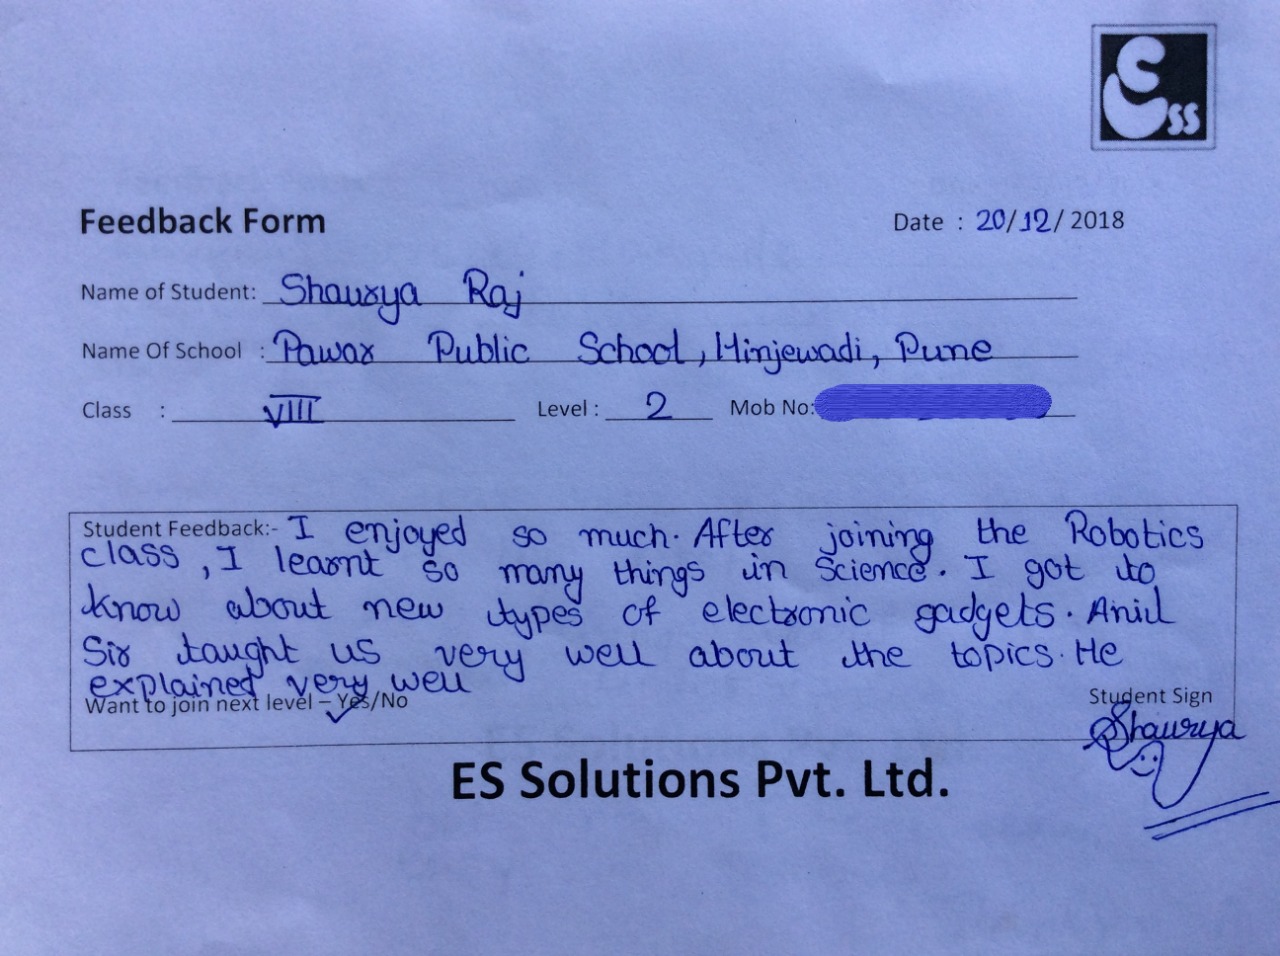 Ess
Feedback Form
Date : 20/12/2018
Name of Student: Shaurya Raj
Name Of School : Pawar Public School, Hinjewadi, Pune
Class : VIII Level : 2 Mob No:
Student Feedback:- I enjoyed so much. After joining the Robotics
class, I learnt so many things in Science. I got to
know about new types of electronic gadgets. Anil
Sir taught us very well about the topics. He
explained very well
Want to join next level – Yes/No
Student Sign
Shaurya
ES Solutions Pvt. Ltd.